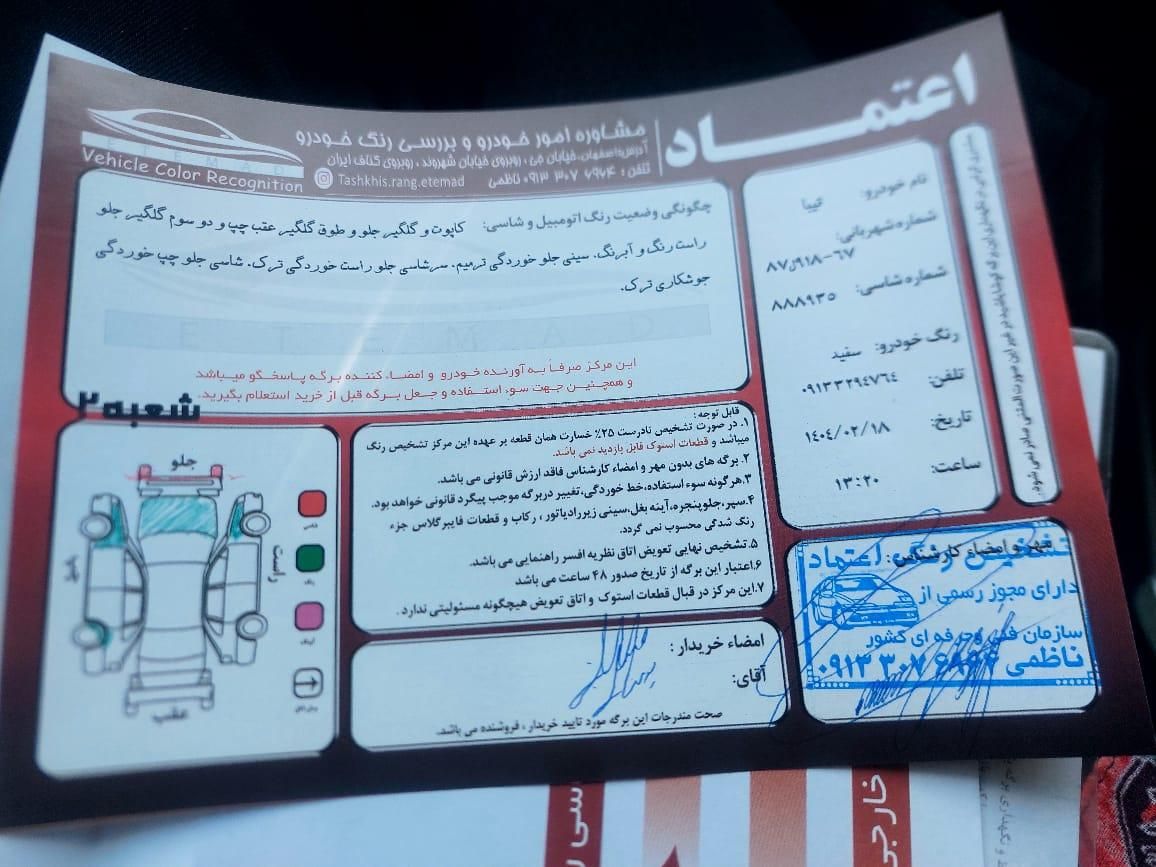 اعتمــاد
مشاوره امور خودرو و بررسی رنگ خودرو
آدرس: اصفهان، خیابان جی، روبروی خیابان شهروند، روبروی کناف ایران
تلفن: ۰۹۱۳ ۳۰۷ ۶۹۶۴ ناظمی
Tashkhis.rang.etemad
E T E M A D
Vehicle Color Recognition
نام خودرو: تیبا
شماره شهربانی:
۸۷ل۹۱۸-۶۷
شماره شاسی:
۸۸۸۹۳۵
رنگ خودرو: سفید
تلفن: ۰۹۱۳۳۲۹۴۷۶۴
تاریخ: ۱۴۰۴/۰۲/۱۸
ساعت: ۱۳:۲۰
چگونگی وضعیت رنگ اتومبیل و شاسی: کاپوت و گلگیر جلو و طوق گلگیر عقب چپ و دو سوم گلگیر جلو
راست رنگ و آبرنگ. سینی جلو خوردگی ترمیم. سرشاسی جلو راست خوردگی ترک. شاسی جلو چپ خوردگی
جوشکاری ترک.
E T E M A D
این مرکز صرفاً به آورنده خودرو و امضاء کننده برگه پاسخگو میباشد
و همچنین جهت سوء استفاده و جعل برگه قبل از خرید استعلام بگیرید.
شعبه ۲
قابل توجه:
۱. در صورت تشخیص نادرست ۲۵٪ خسارت همان قطعه بر عهده این مرکز تشخیص رنگ
میباشد و قطعات استوک قابل بازدید نمی باشد.
۲. برگه های بدون مهر و امضاء کارشناس فاقد ارزش قانونی می باشد.
۳. هرگونه سوء استفاده، خط خوردگی، تغییر در برگه موجب پیگرد قانونی خواهد بود.
۴. سپر، جلوپنجره، آینه بغل، سینی زیر رادیاتور، رکاب و قطعات فایبرگلاس جزء
رنگ شدگی محسوب نمی گردد.
۵. تشخیص نهایی تعویض اتاق نظریه افسر راهنمایی می باشد.
۶. اعتبار این برگه از تاریخ صدور ۴۸ ساعت می باشد
۷. این مرکز در قبال قطعات استوک و اتاق تعویض هیچگونه مسئولیتی ندارد.
جلو
راست
عقب
امضاء خریدار:
آقای:
صحت مندرجات این برگه مورد تایید خریدار، فروشنده می باشد.
مهر و امضاء کارشناس:
تشخیص رنگ اعتماد
دارای مجوز رسمی از
سازمان فنی وحرفه ای کشور
ناظمی
خارجی